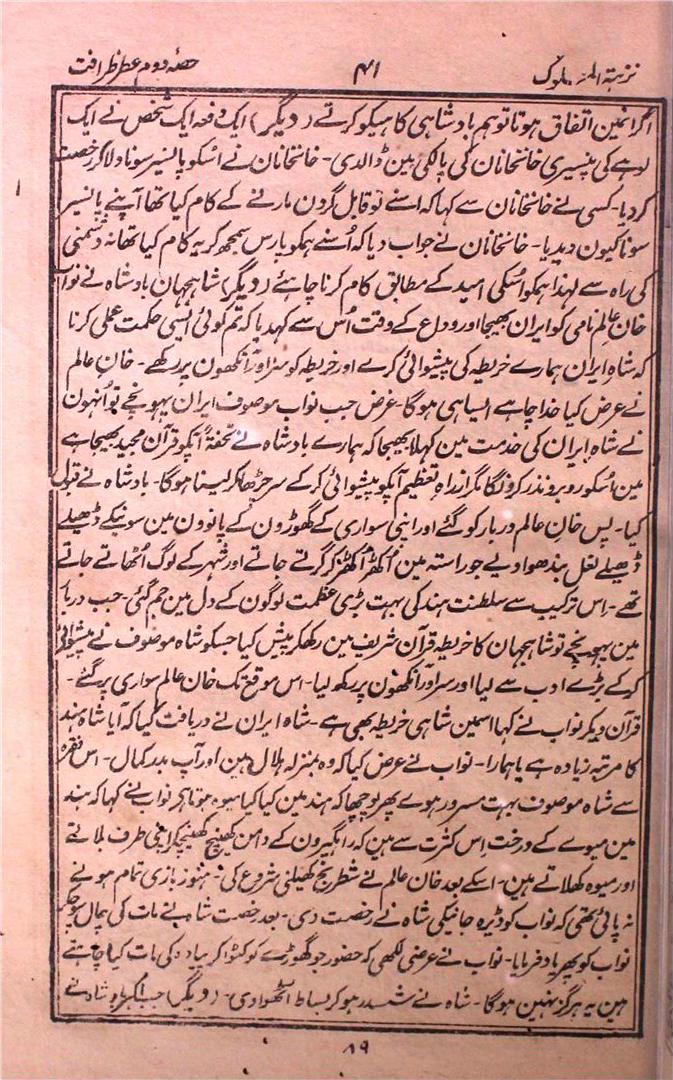 حصہ دوم عطر ظرافت ۴۱ نزہتہ الملوک
اگر انمین اتفاق ہوتا تو ہم بادشاہی کاہیکو کرتے (دیگر) ایک دفعہ ایک شخص نے ایک
لوہے کی پنسیری خانخانان کی پالکی مین ڈالدی۔ خانخانان نے اُسکو پانسیر سونا دلاکر رخصت
کر دیا۔ کسی نے خانخانان سے کہا کہ اسنے تو قابل گردن مارنے کے کام کیا تھا آپنے پانسیر
سونا کیون دیدیا۔ خانخانان نے جواب دیا کہ اُسنے ہمکو پارس سمجھ کر یہ کام کیا تھا نہ دشمنی
کی راہ سے لہذا ہمکو اُسکی امید کے مطابق کام کرنا چاہئے (دیگر) شاہجہان بادشاہ نے نواب
خان عالم نامی کو ایران بھیجا اور وداع کے وقت اُس سے کہدیا کہ تم کوئی ایسی حکمت عملی کرنا
کہ شاہ ایران ہمارے خریطہ کی پیشوائی کرے اور خریطہ کو سر اور آنکھون پر رکھے۔ خان عالم
نے عرض کیا خدا چاہے ایسا ہی ہوگا۔ غرض جب نواب موصوف ایران پہونچے تو اُنہون
نے شاہ ایران کی خدمت مین کہلا بھیجا کہ ہمارے بادشاہ نے تحفۃً آپکو قرآن مجید بھیجا ہے
مین اُسکو روبرو نذر کرونگا مگر از راہ تعظیم آپکو پیشوائی کر کے سر چڑھاکر لینا ہوگا۔ بادشاہ نے قبول
کیا۔ پس خان عالم دربار کو گئے اور اپنی سواری کے گھوڑون کے پانوون مین سونیکے ڈھیلے
ڈھیلے نعل بندھوا دیے جو راستہ مین اُکھڑ اُکھڑ کر گرتے جاتے اور شہر کے لوگ اُٹھاتے جاتے
تھے۔ اس ترکیب سے سلطنت ہند کی بہت بڑی عظمت لوگون کے دل مین جم گئی۔ جب دربار
مین پہونچے تو شاہجہان کا خریطہ قرآن شریف مین رکھکر پیش کیا جسکو شاہ موصوف نے پیشوائی
کر کے بڑے ادب سے لیا اور سر اور آنکھون پر رکھ لیا۔ اس موقع تک خان عالم سواری پر گئے۔
قرآن دیکر نواب نے کہا اسمین شاہی خریطہ بھی ہے۔ شاہ ایران نے دریافت کیا کہ آیا شاہ ہند
کا مرتبہ زیادہ ہے یا ہمارا۔ نواب نے عرض کیا کہ وہ بمنزلہ ہلال ہین اور آپ بدر کمال۔ اس فقرہ
سے شاہ موصوف بہت مسرور ہوے پھر پوچھا کہ ہند مین کیا کیا میوہ ہوتا ہے نواب نے کہا کہ ہند
مین میوے کے درخت اس کثرت سے ہین کہ راہگیرون کے دامن کھینچ کھینچکر اپنی طرف بلاتے
اور میوہ کھلاتے ہین۔ اسکے بعد خان عالم نے شطرنج کھیلنی شروع کی۔ ہنوز بازی تمام ہونے
نہ پائی تھی کہ نواب کو ڈیرہ جانیکی شاہ نے رخصت دی۔ بعد رخصت شاہ نے مات کی چال سوچکر
نواب کو پھر یاد فرمایا۔ نواب نے عرضی لکھی کہ حضور جو گھوڑے کو کٹوا کر پیادہ کی مات کیا چاہتے
ہین یہ ہرگز نہین ہوگا۔ شاہ نے ششدر ہوکر بساط اُٹھوا دی۔ (دیگر) جب اکبر شاہ نے
۸۹